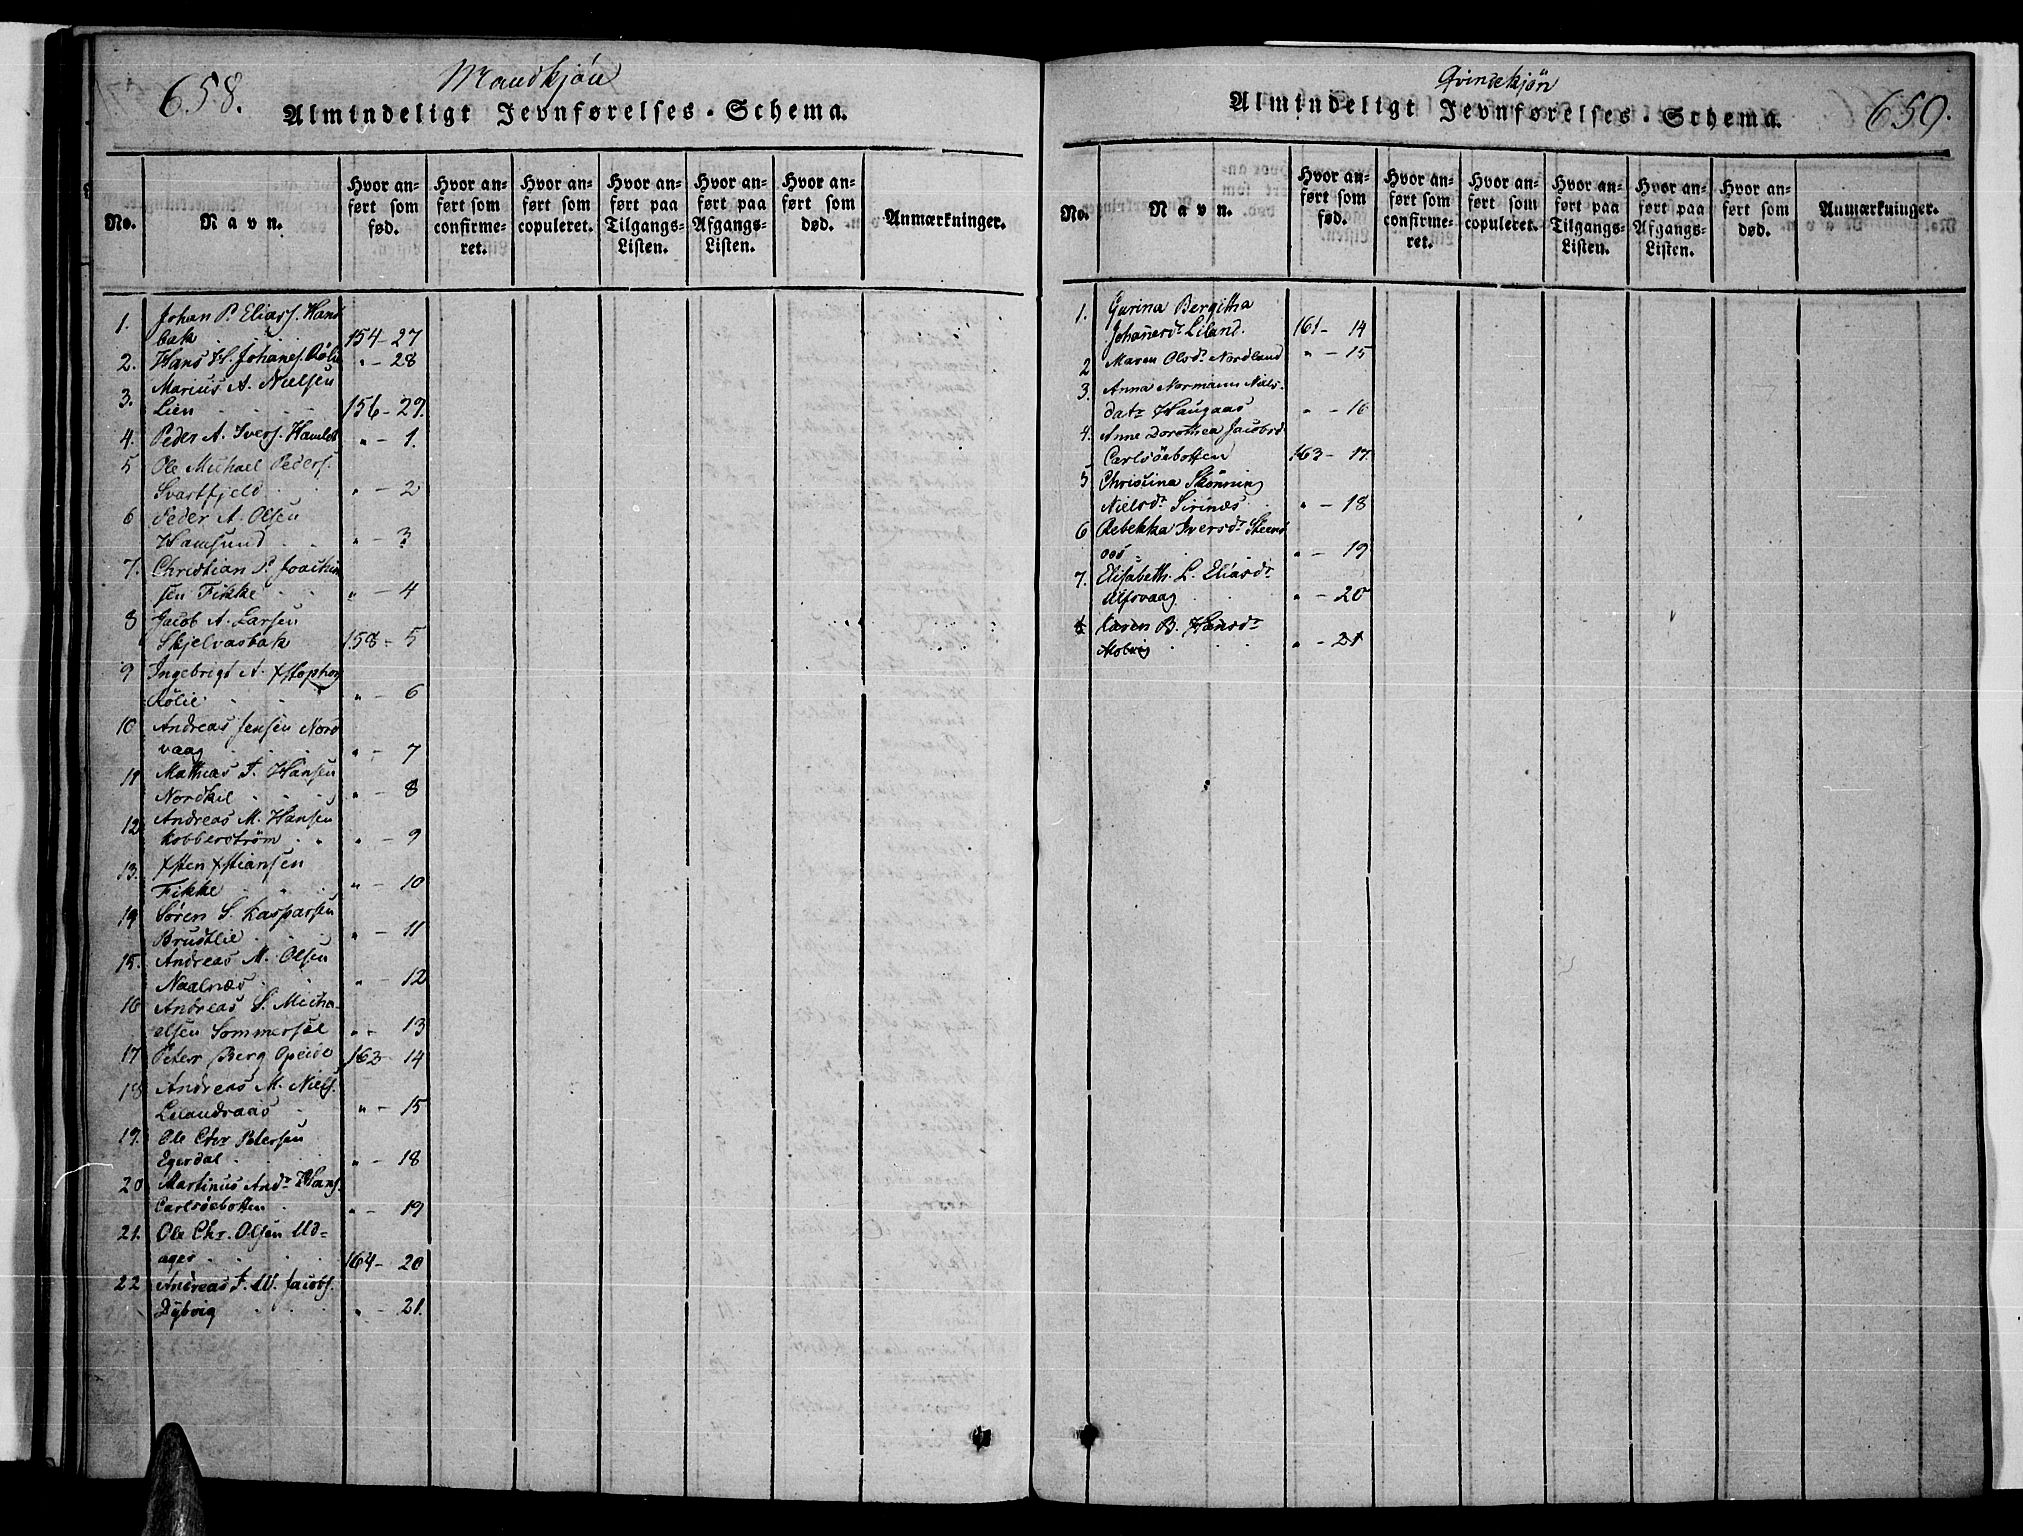 658.
Mandkjön
Almindeligt Jevnførelses-Schema.
No.
Navn.
Hvor anført som fød.
Hvor anført som confirmeret.
Hvor anført som copuleret.
Hvor anført paa Tilgangs-Listen.
Hvor anført paa Afgangs-Listen.
Hvor anført som død.
Anmærkninger.
1. Johan P. Eliass. Hand
bak . . . 154-27
2. Hans H. Johanes. Rölie " - 28
3. Marius A. Nielsen
Lien . . . 156-29.
4. Peder A. Ivers. " - 1.
5 Ole Michael Peders.
Svartfjeld . . " - 2
6 Peder A. Olsen
Hamsund . . " - 3
7. Christian P. Joachim
sen Fikke . . " - 4
8 Jacob A. Larsen
Skjelvasbak 158-5
9 Ingebrigt A. Xstophers
Rölie . . " - 6
10 Andreas Jensen Nord
vaag . . . " - 7
11 Mathias F. Hansen
Nordkil . . . " - 8
12 Andreas M. Hansen
Kobberström . " - 9
13. Xsten Xstiansen
Fikke . . . " - 10
14 Søren S. Kaspersen
Brustlie . . " - 11
15. Andreas M. Olsen
Naalnæs . . " - 12
16 Andreas S. Micha-
elsen Sommersel " - 13
17 Peter Berg Opeide 163-14
18 Andreas M. Niels.
Lilandsaas . " - 15
19. Ole Chr Petersen
Egerdal . . . " - 18
20 Martinus Andr Hans.
Carlsöebotten . " - 19
21. Ole Chr. Olsen Ud=
ager . . . . 164-20
22 Andreas F. W. Jacobs.
Dybvig . . . " - 21.
Qvindekjön
Almindeligt Jevnførelses-Schema.
659.
No.
Navn.
Hvor anført som fød.
Hvor anført som confirmeret.
Hvor anført som copuleret.
Hvor anført paa Tilgangs-Listen.
Hvor anført paa Afgangs-Listen.
Hvor anført som død.
Anmærkninger.
1. Gurina Bergitha
Johanesdr Liland. 161-14
2 Maren Olsdr Nordland " - 15
3. Anna Normann Niels-
datr Haugaas " - 16
4. Anne Dorothea Jacobsd
Carlsöebotten 163-17
5 Christina Skönning
Nielsdr Sirinæs . " - 18
6 Rebekka Iversdr
" - 19
7. Elisabeth. L. Eliasdr
Ulfsvaag . . " - 20
8 Karen B. Hansdr
Molvig . . . " - 21